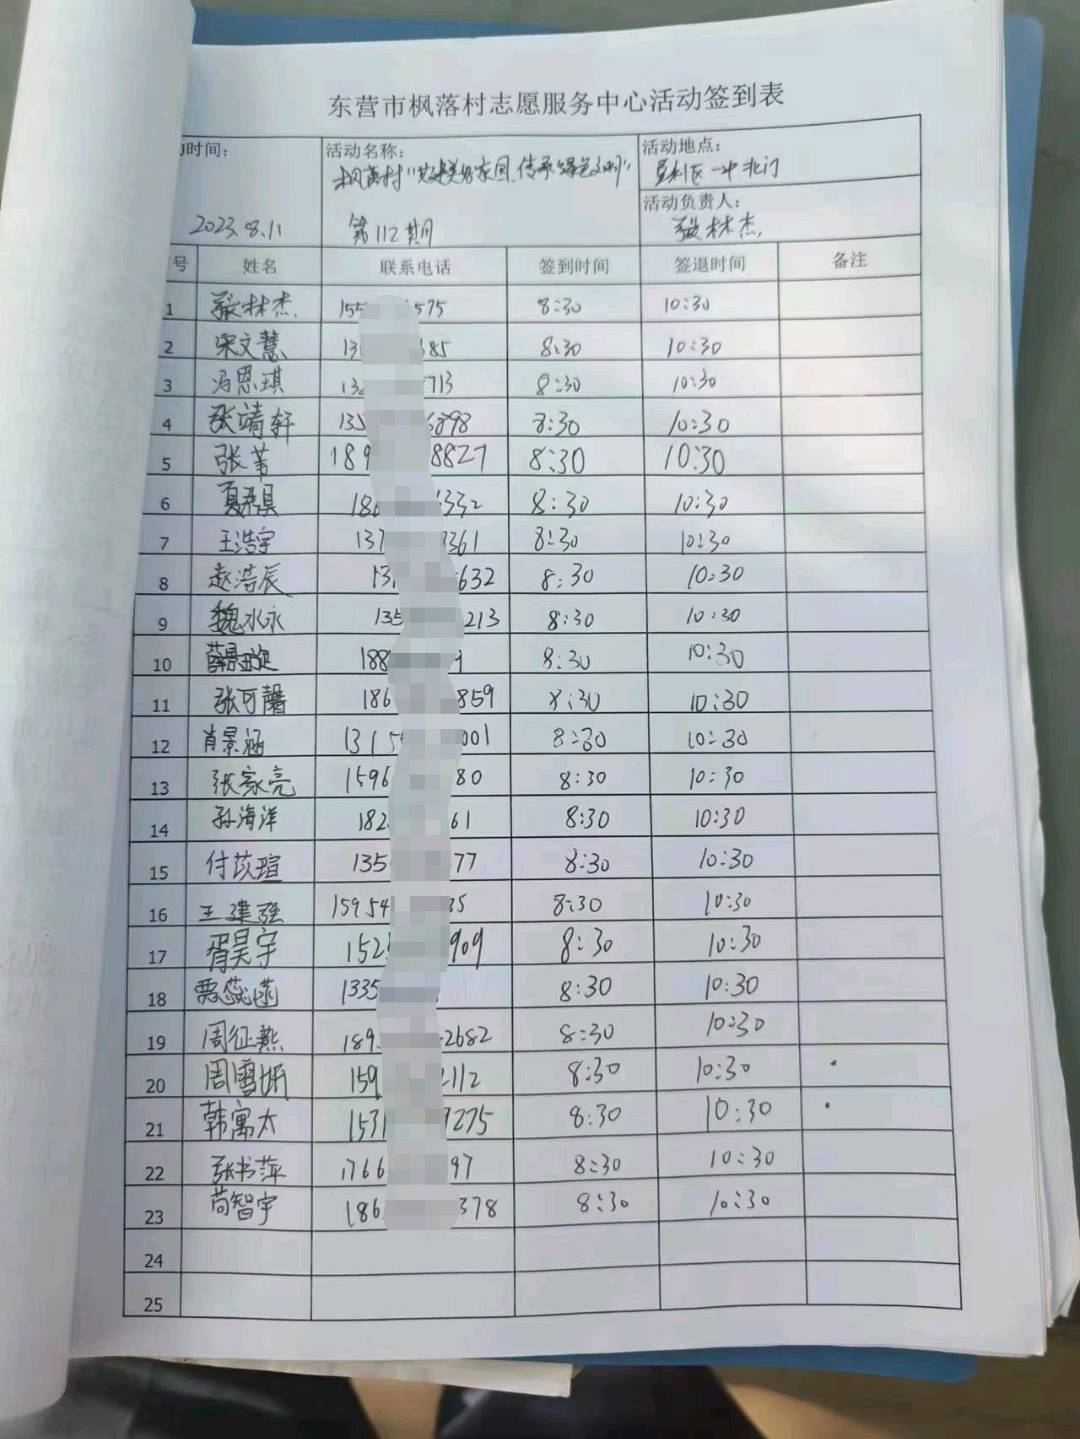 东营市枫落村志愿服务中心活动签到表
时间: 活动名称: 活动地点:
枫落村"共建美好家园,传承绿色 " 垦利区一中北门
活动负责人:
2023.8.11 第112期 林杰
号 姓名 联系电话 签到时间 签退时间 备注
1 林杰 155 575 8:30 10:30
2 宋文慧 13 685 8:30 10:30
3 冯思琪 13 713 8:30 10:30
4 张靖轩 135 6898 8:30 10:30
5 张苇 189 8827 8:30 10:30
6 夏 18 332 8:30 10:30
7 王浩宇 137 361 8:30 10:30
8 赵浩辰 13 632 8:30 10:30
9 魏水永 135 213 8:30 10:30
10 薛 188 8:30 10:30
11 张可馨 186 859 8:30 10:30
12 肖景涵 1315 001 8:30 10:30
13 张家亮 1596 80 8:30 10:30
14 孙海洋 182 61 8:30 10:30
15 付苡瑄 135 77 8:30 10:30
16 王建强 15954 35 8:30 10:30
17 胥昊宇 152 909 8:30 10:30
18 贾蕊菡 1335 8:30 10:30
19 周征燕 189 2682 8:30 10:30
20 周雪妍 159 2112 8:30 10:30
21 韩寓太 1531 7275 8:30 10:30
22 张书萍 1766 97 8:30 10:30
23 尚智宇 186 378 8:30 10:30
24
25